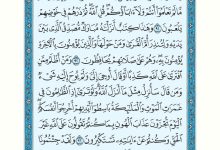 مَّا لَمْ تَعْلَمُوٓا۟ أَنتُمْ وَلَآ ءَابَآؤُكُمْ قُلِ ٱللَّهُ ثُمَّ ذَرْهُمْ فِى خَوْضِهِمْ
يَلْعَبُونَ ۝٩١ وَهَٰذَا كِتَٰبٌ أَنزَلْنَٰهُ مُبَارَكٌ مُّصَدِّقُ ٱلَّذِى بَيْنَ
يَدَيْهِ وَلِتُنذِرَ أُمَّ ٱلْقُرَىٰ وَمَنْ حَوْلَهَا وَٱلَّذِينَ يُؤْمِنُونَ بِٱلْءَاخِرَةِ
يُؤْمِنُونَ بِهِۦ وَهُمْ عَلَىٰ صَلَاتِهِمْ يُحَافِظُونَ ۝٩٢ وَمَنْ أَظْلَمُ مِمَّنِ
ٱفْتَرَىٰ عَلَى ٱللَّهِ كَذِبًا أَوْ قَالَ أُوحِىَ إِلَىَّ وَلَمْ يُوحَ إِلَيْهِ شَىْءٌ
وَمَن قَالَ سَأُنزِلُ مِثْلَ مَآ أَنزَلَ ٱللَّهُ وَلَوْ تَرَىٰٓ إِذِ ٱلظَّٰلِمُونَ فِى
غَمَرَٰتِ ٱلْمَوْتِ وَٱلْمَلَٰٓئِكَةُ بَاسِطُوٓا۟ أَيْدِيهِمْ أَخْرِجُوٓا۟ أَنفُسَكُمُ
ٱلْيَوْمَ تُجْزَوْنَ عَذَابَ ٱلْهُونِ بِمَا كُنتُمْ تَقُولُونَ عَلَى ٱللَّهِ غَيْرَ
ٱلْحَقِّ وَكُنتُمْ عَنْ ءَايَٰتِهِۦ تَسْتَكْبِرُونَ ۝٩٣ وَلَقَدْ جِئْتُمُونَا